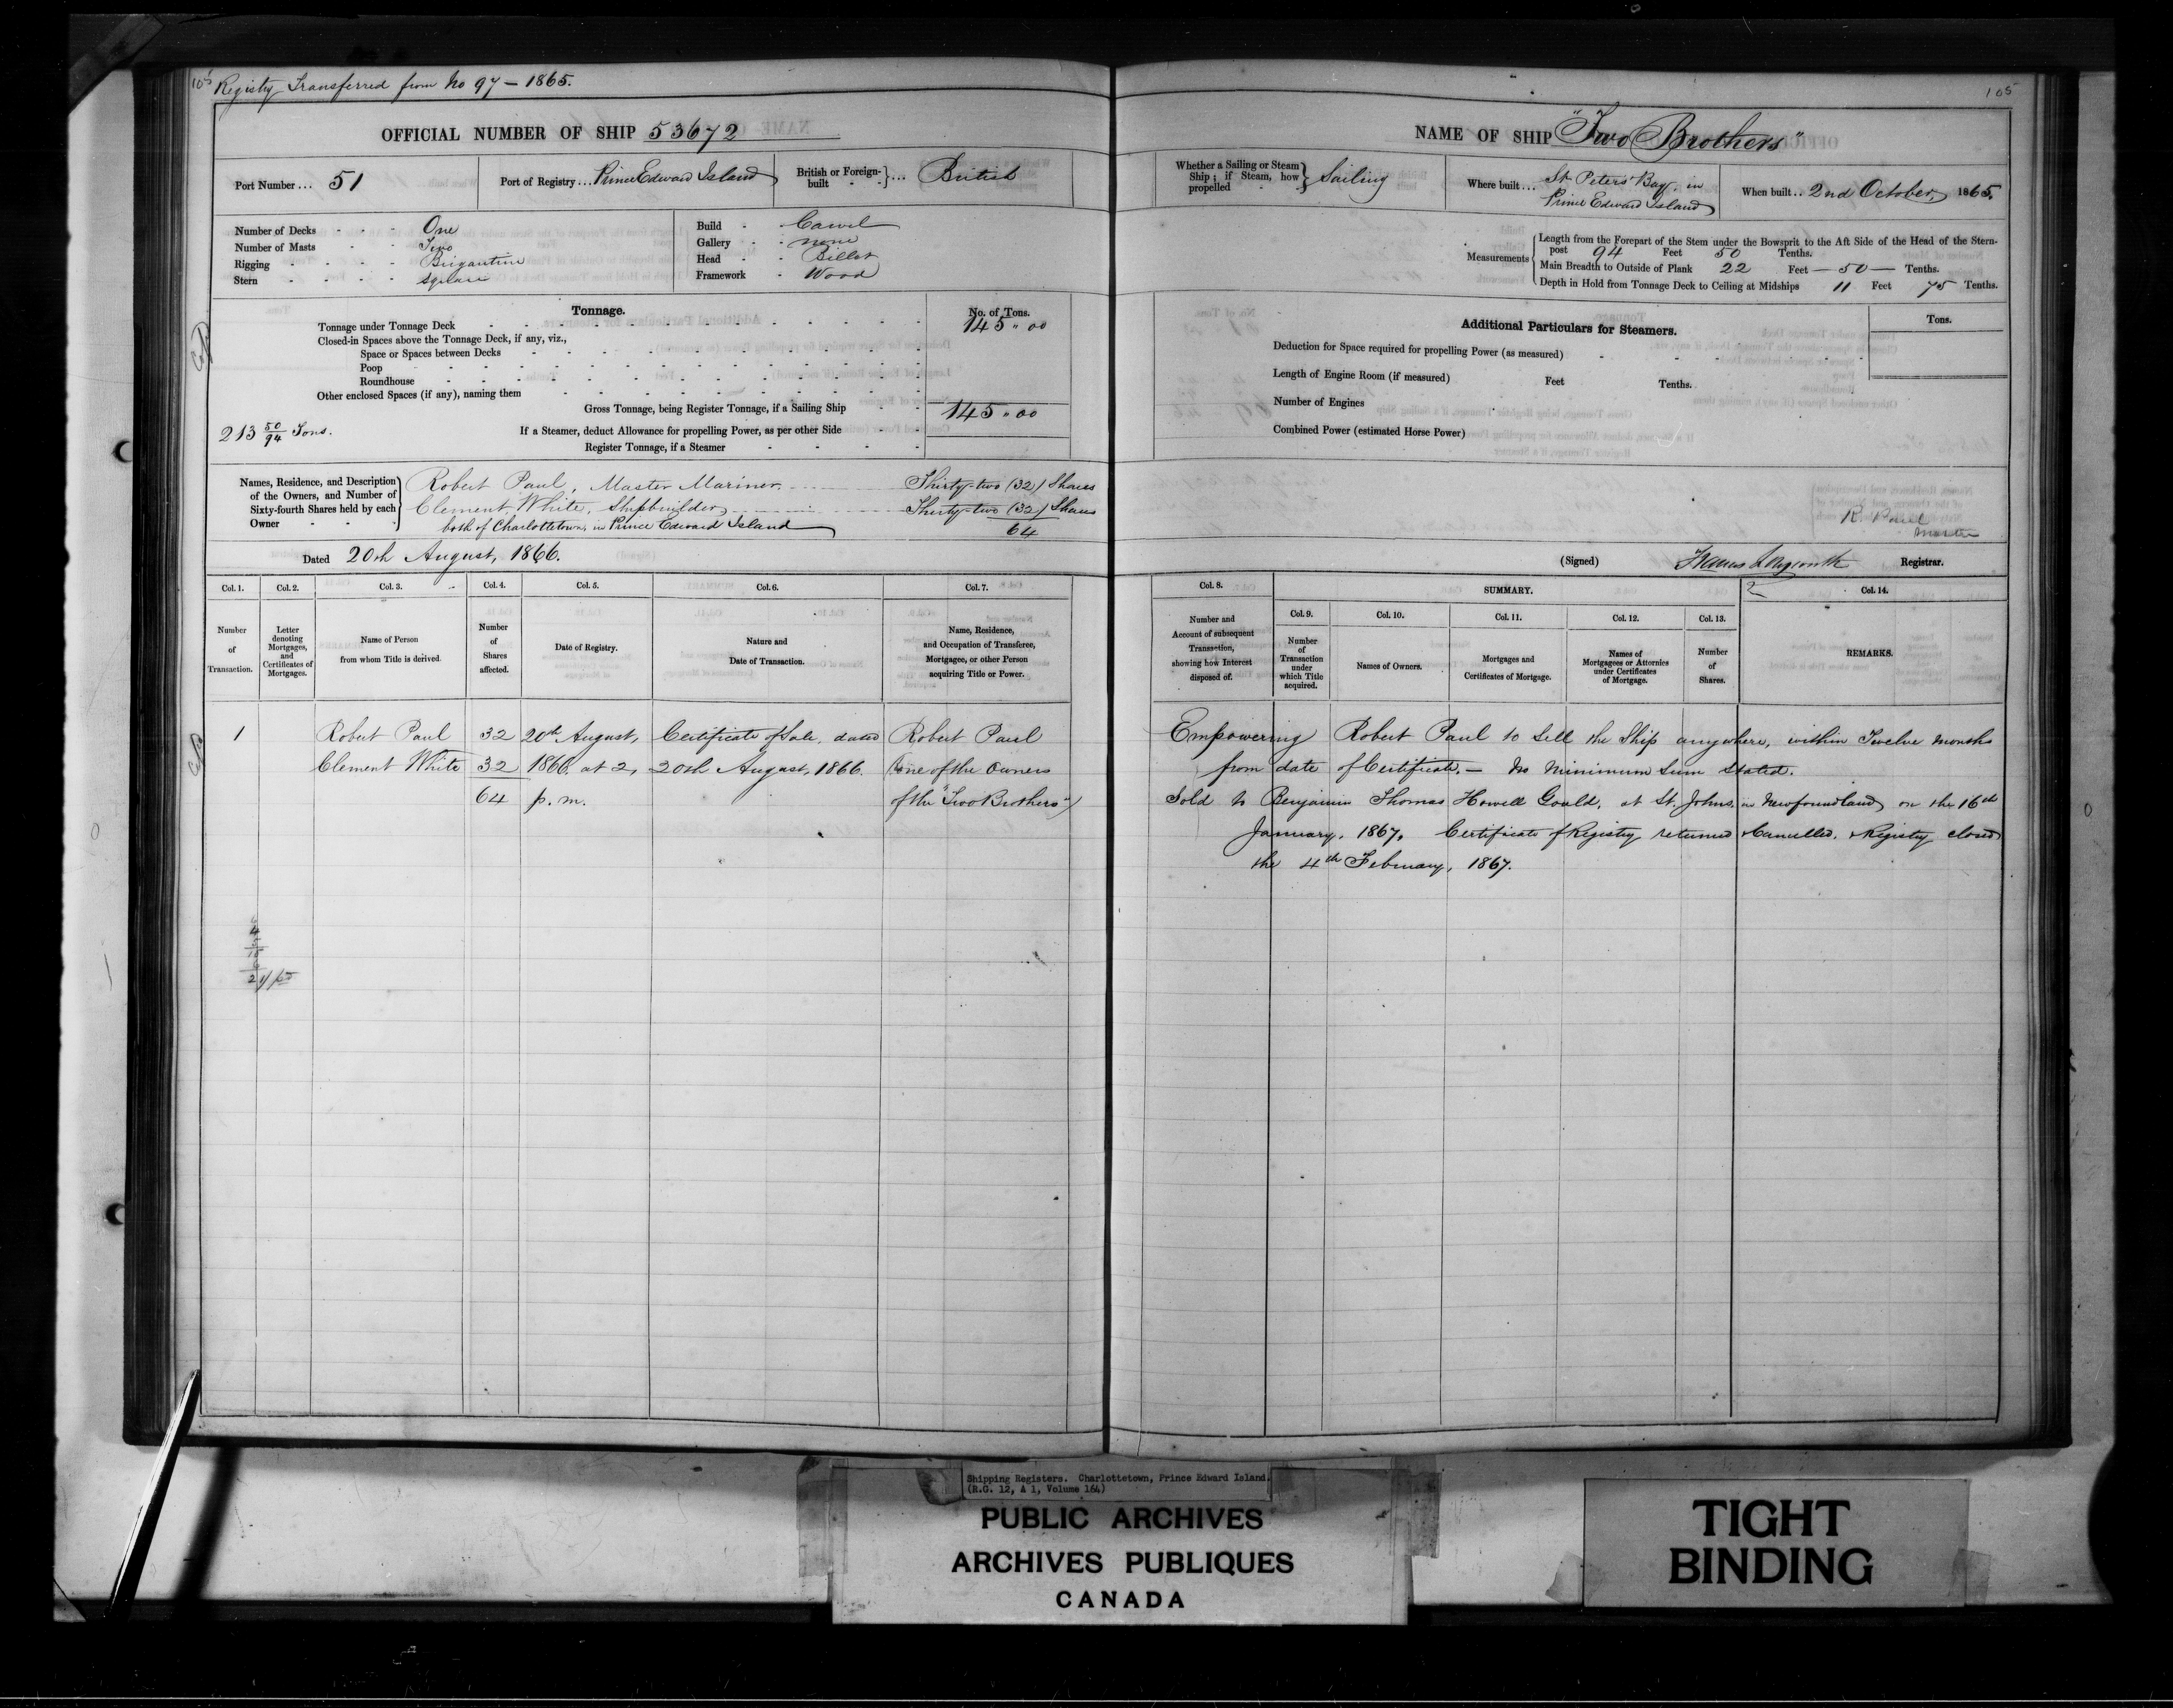 105 Registry Transferred from No 97 — 1865.
OFFICIAL NUMBER OF SHIP 53672
Port Number ... 51
Port of Registry ... Prince Edward Island
British or Foreign-built ... British
Number of Decks - - - One
Number of Masts - - Two
Rigging - - - - Brigantine
Stern - - - - square
Build - Carvel
Gallery - - none
Head - - Billet
Framework - Wood
Tonnage.
No. of Tons.
Tonnage under Tonnage Deck 145 " 00
Closed-in Spaces above the Tonnage Deck, if any, viz.,
Space or Spaces between Decks
Poop
Roundhouse
Other enclosed Spaces (if any), naming them
Gross Tonnage, being Register Tonnage, if a Sailing Ship 145 " 00
213 50/94 Tons.
If a Steamer, deduct Allowance for propelling Power, as per other Side
Register Tonnage, if a Steamer
Names, Residence, and Description of the Owners, and Number of Sixty-fourth Shares held by each Owner
Robert Paul, Master Mariner. Thirty-two (32) Shares
Clement White, Shipbuilder, Thirty-two (32) Shares
both of Charlottetown, in Prince Edward Island 64
Dated 20th August, 1866.
Col. 1. Col. 2. Col. 3. Col. 4. Col. 5. Col. 6. Col. 7.
Number of Transaction.
Letter denoting Mortgages, and Certificates of Mortgages.
Name of Person from whom Title is derived.
Number of Shares affected.
Date of Registry.
Nature and Date of Transaction.
Name, Residence, and Occupation of Transferee, Mortgagee, or other Person acquiring Title or Power.
1 Robert Paul 32 20th August, Certificate of Sale, dated Robert Paul
Clement White 32 1866. at 2, 20th August, 1866. (one of the owners
64 p. m. of the "Two Brothers")
105
NAME OF SHIP "Two Brothers"
Whether a Sailing or Steam Ship; if Steam, how propelled Sailing
Where built ... St Peters Bay, in Prince Edward Island
When built .. 2nd October, 1865.
Measurements
Length from the Forepart of the Stem under the Bowsprit to the Aft Side of the Head of the Stern-
post 94 Feet 50 Tenths.
Main Breadth to Outside of Plank 22 Feet — 50 — Tenths.
Depth in Hold from Tonnage Deck to Ceiling at Midships 11 Feet 75 Tenths.
Additional Particulars for Steamers.
Tons.
Deduction for Space required for propelling Power (as measured)
Length of Engine Room (if measured) Feet Tenths.
Number of Engines
Combined Power (estimated Horse Power)
R. Paul
Master
(Signed) Thomas Longworth Registrar.
Col. 8. SUMMARY. Col. 14.
Col. 9. Col. 10. Col. 11. Col. 12. Col. 13.
Number and Account of subsequent Transaction, showing how Interest disposed of.
Number of Transaction under which Title acquired.
Names of Owners.
Mortgages and Certificates of Mortgage.
Names of Mortgagees or Attornies under Certificates of Mortgage.
Number of Shares.
REMARKS.
Empowering Robert Paul to Sell the Ship anywhere, within Twelve months
from date of Certificate. — No Minimum Sum Stated.
Sold to Benjamin Thomas Howell Gould, at St. Johns, in Newfoundland, on the 16th
January, 1867, Certificate of Registry returned Cancelled, & Registry closed
the 4th February, 1867.
Shipping Registers. Charlottetown, Prince Edward Island.
(R.G. 12, A 1, Volume 164)
PUBLIC ARCHIVES
ARCHIVES PUBLIQUES
CANADA
TIGHT
BINDING